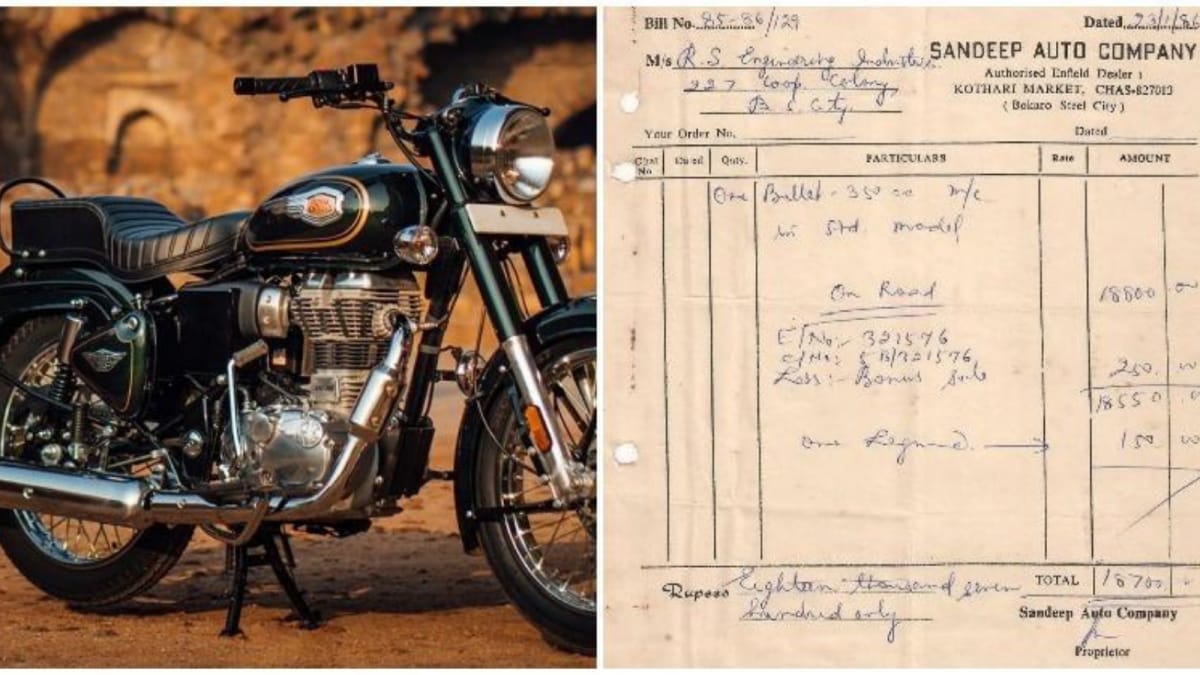 Bill No. 85-86/129 Dated 23/1/86
M/s R.S. Engineering Industries
SANDEEP AUTO COMPANY
Authorised Enfield Dealer :
227 Coop. Colony,
KOTHARI MARKET, CHAS-827013
B.S. City.
( Bokaro Steel City )
Your Order No. Dated
Chal No Dated Qnty. PARTICULARS Rate AMOUNT
One Bullet - 350 cc m/c
in std. model
On Road 18800 00
E/No:- 321576
C/No:- 5B/321576
Less :- Bonus 250 00
18550
one Legguard. 150 00
Rupees Eighteen thousand seven TOTAL 18700
hundred only
Sandeep Auto Company
Proprietor